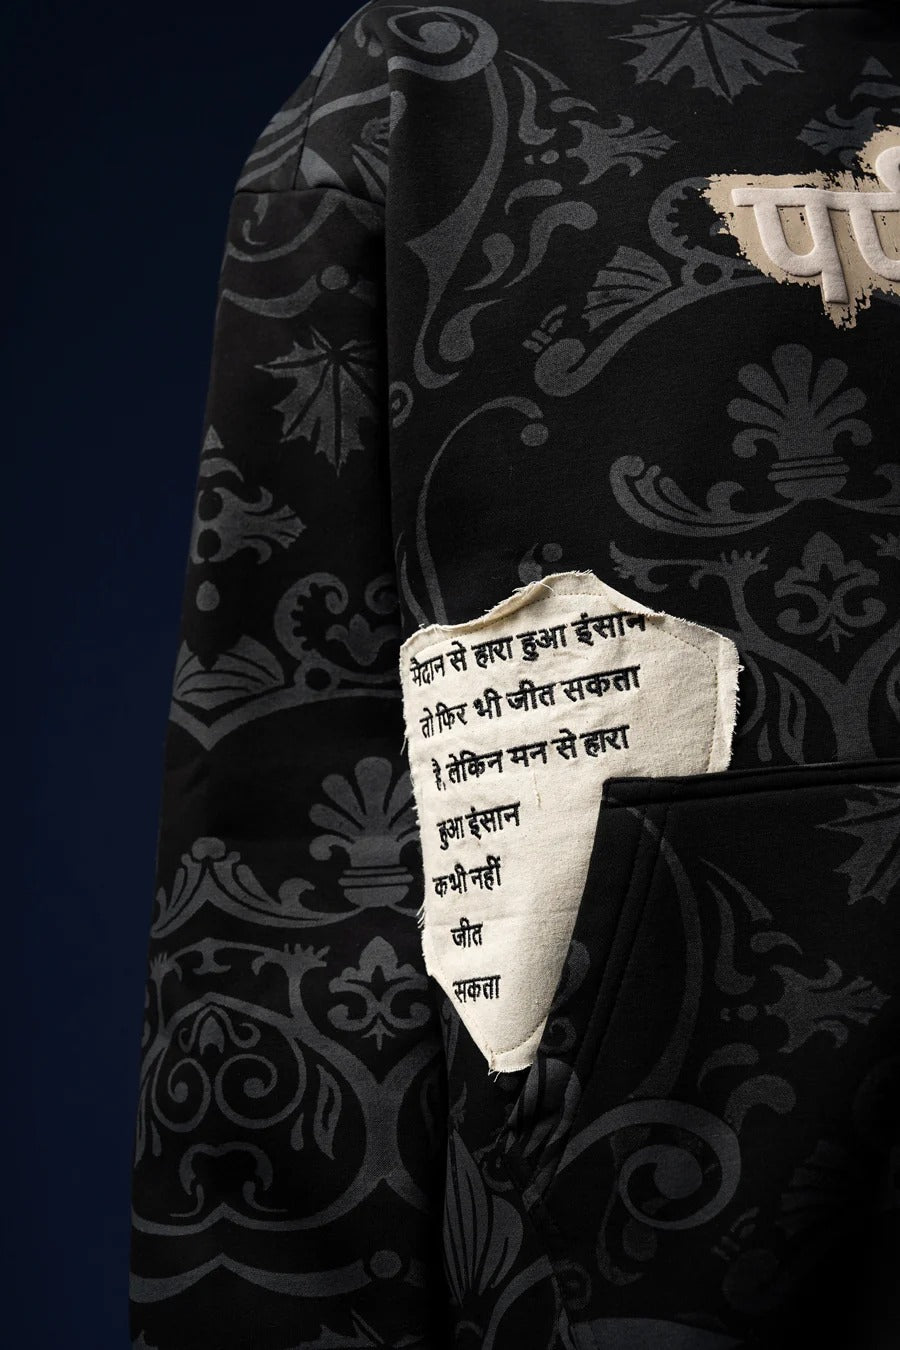 मैदान से हारा हुआ इंसान
तो फिर भी जीत सकता
है, लेकिन मन से हारा
हुआ इंसान
कभी नहीं
जीत
सकता